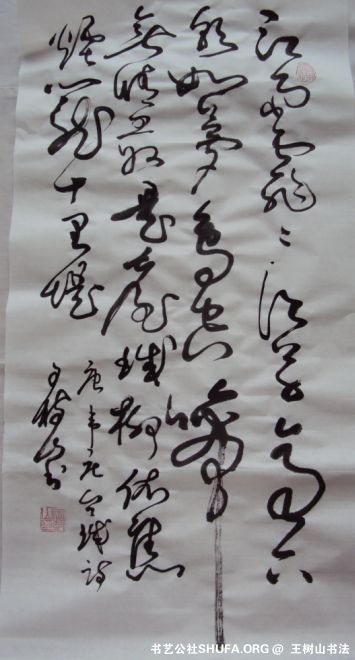 江雨霏霏江草齐六
朝如梦鸟空啼
无情最是台城柳依旧
烟笼十里堤
唐韦庄台城诗
王树山书
书艺公社SHUFA.ORG @ 王树山书法